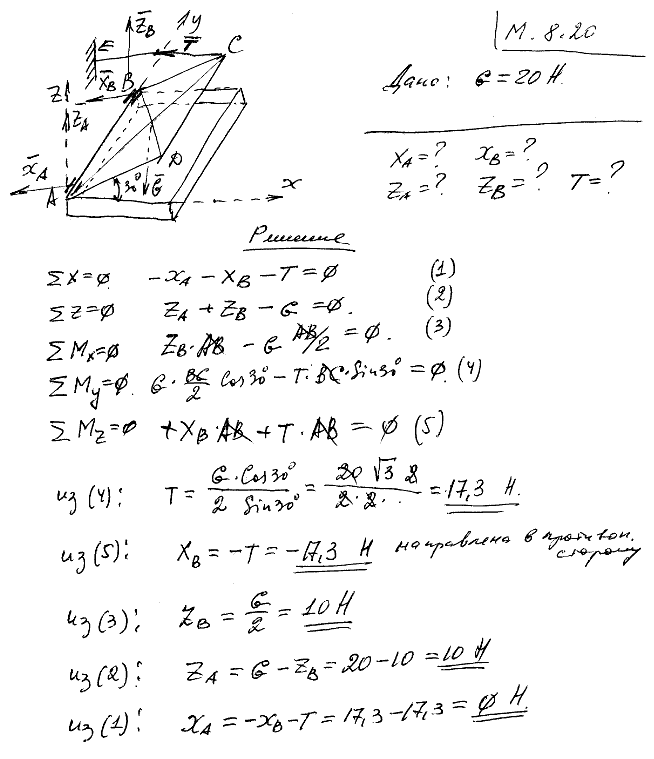 М. 8.20
Дано: G = 20 Н.
X_A = ? X_B = ?
Z_A = ? Z_B = ? T = ?
Z̄_B y
E T̄ C
X̄_B B
Z
Z̄_A
X̄_A D
A 30° Ḡ x
Решение
ΣX=0 -X_A - X_B - T = 0 (1)
ΣZ=0 Z_A + Z_B - G = 0. (2)
ΣM_x=0 Z_B·AB - G AB/2 = 0. (3)
ΣM_y=0. G·BC/2 Cos30° - T·BC·Sin30° = 0. (4)
ΣM_z=0 +X_B·AB + T·AB = 0 (5)
из (4): T = G·Cos30°/2 Sin30° = 20 √3 2/2·2· = 17,3 Н.
из (5): X_B = -T = -17,3 Н направлена в противоп. сторону
из (3): Z_B = G/2 = 10 Н
из (2): Z_A = G - Z_B = 20 - 10 = 10 Н
из (1): X_A = -X_B - T = 17,3 - 17,3 = 0 Н.